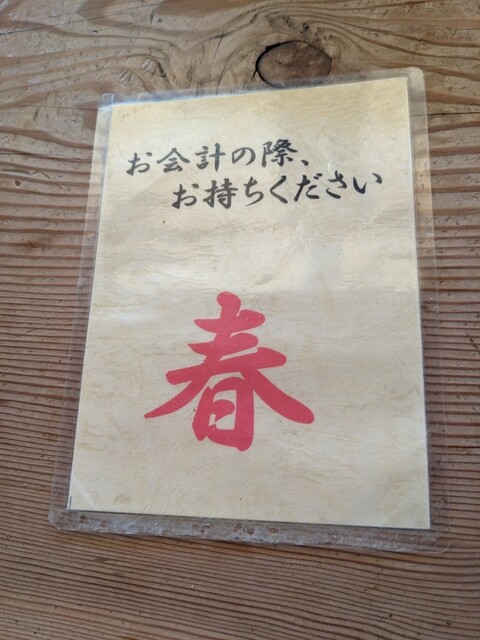 お会計の際、
お持ちください
春